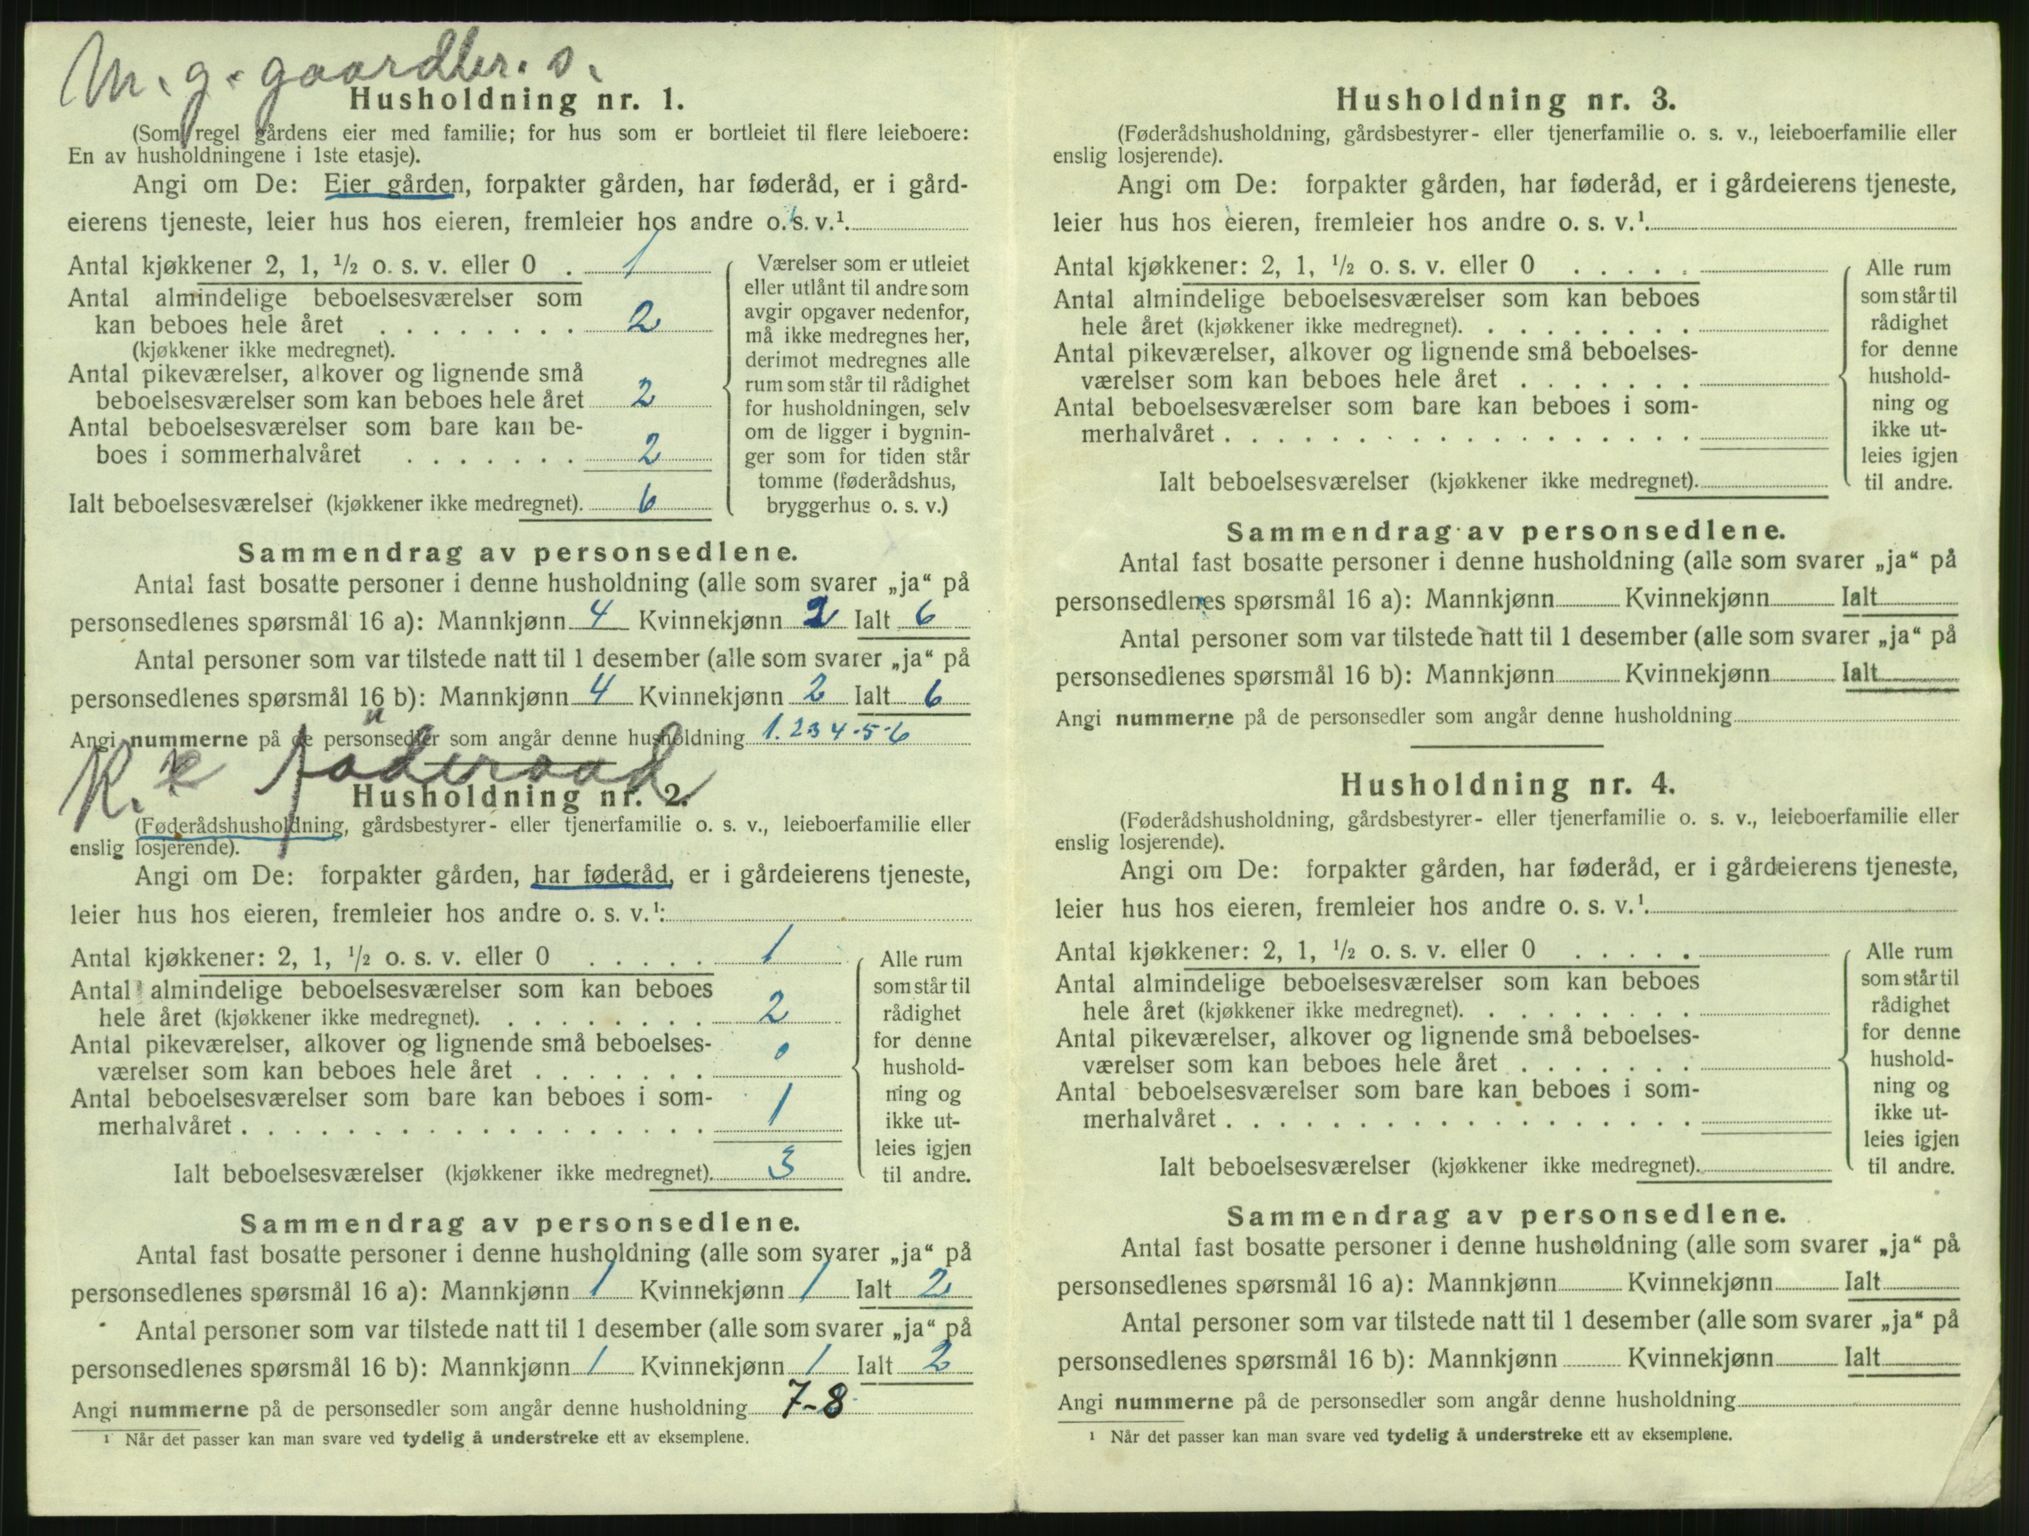 M. g. gaardbr. s.
Husholdning nr. 1.
(Som regel gårdens eier med familie; for hus som er bortleiet til flere leieboere:
En av husholdningene i 1ste etasje).
Angi om De: Eier gården, forpakter gården, har føderåd, er i gård-
eierens tjeneste, leier hus hos eieren, fremleier hos andre o. s. v.¹.
Antal kjøkkener 2, 1, ½ o. s. v. eller 0 . 1
Antal almindelige beboelsesværelser som
kan beboes hele året . . . . . . . . 2
(kjøkkener ikke medregnet).
Antal pikeværelser, alkover og lignende små
beboelsesværelser som kan beboes hele året 2
Antal beboelsesværelser som bare kan be-
boes i sommerhalvåret . . . . . . . 2
Ialt beboelsesværelser (kjøkkener ikke medregnet). 6
Værelser som er utleiet
eller utlånt til andre som
avgir opgaver nedenfor,
må ikke medregnes her,
derimot medregnes alle
rum som står til rådighet
for husholdningen, selv
om de ligger i bygnin-
ger som for tiden står
tomme (føderådshus,
bryggerhus o. s. v.)
Sammendrag av personsedlene.
Antal fast bosatte personer i denne husholdning (alle som svarer „ja“ på
personsedlenes spørsmål 16 a): Mannkjønn 4 Kvinnekjønn 2 Ialt 6
Antal personer som var tilstede natt til 1 desember (alle som svarer „ja“ på
personsedlenes spørsmål 16 b): Mannkjønn 4 Kvinnekjønn 2 Ialt 6
Angi nummerne på de personsedler som angår denne husholdning 1. 2 3 4 - 5 - 6
føderaad
Husholdning nr. 2.
(Føderådshusholdning, gårdsbestyrer- eller tjenerfamilie o. s. v., leieboerfamilie eller
enslig losjerende).
Angi om De: forpakter gården, har føderåd, er i gårdeierens tjeneste,
leier hus hos eieren, fremleier hos andre o. s. v.¹:
Antal kjøkkener: 2, 1, ½ o. s. v. eller 0 . . . . . 1
Antal almindelige beboelsesværelser som kan beboes
hele året (kjøkkener ikke medregnet). . . . . . . . 2
Antal pikeværelser, alkover og lignende små beboelses-
værelser som kan beboes hele året . . . . . . . 0
Antal beboelsesværelser som bare kan beboes i som-
merhalvåret . . . . . . . . . . . . . . . . . . 1
Ialt beboelsesværelser (kjøkkener ikke medregnet). 3
Alle rum
som står til
rådighet
for denne
hushold-
ning og
ikke ut-
leies igjen
til andre.
Sammendrag av personsedlene.
Antal fast bosatte personer i denne husholdning (alle som svarer „ja“ på
personsedlenes spørsmål 16 a): Mannkjønn 1 Kvinnekjønn 1 Ialt 2
Antal personer som var tilstede natt til 1 desember (alle som svarer „ja“ på
personsedlenes spørsmål 16 b): Mannkjønn 1 Kvinnekjønn 1 Ialt 2
Angi nummerne på de personsedler som angår denne husholdning 7-8
¹ Når det passer kan man svare ved tydelig å understreke ett av eksemplene.
Husholdning nr. 3.
(Føderådshusholdning, gårdsbestyrer- eller tjenerfamilie o. s. v., leieboerfamilie eller
enslig losjerende).
Angi om De: forpakter gården, har føderåd, er i gårdeierens tjeneste,
leier hus hos eieren, fremleier hos andre o. s. v.¹.
Antal kjøkkener: 2, 1, ½ o. s. v. eller 0 . . . . .
Antal almindelige beboelsesværelser som kan beboes
hele året (kjøkkener ikke medregnet). . . . . . . .
Antal pikeværelser, alkover og lignende små beboelses-
værelser som kan beboes hele året . . . . . . .
Antal beboelsesværelser som bare kan beboes i som-
merhalvåret . . . . . . . . . . . . . . . . . .
Ialt beboelsesværelser (kjøkkener ikke medregnet).
Alle rum
som står til
rådighet
for denne
hushold-
ning og
ikke ut-
leies igjen
til andre.
Sammendrag av personsedlene.
Antal fast bosatte personer i denne husholdning (alle som svarer „ja“ på
personsedlenes spørsmål 16 a): Mannkjønn Kvinnekjønn Ialt
Antal personer som var tilstede natt til 1 desember (alle som svarer „ja“ på
personsedlenes spørsmål 16 b): Mannkjønn Kvinnekjønn Ialt
Angi nummerne på de personsedler som angår denne husholdning
Husholdning nr. 4.
(Føderådshusholdning, gårdsbestyrer- eller tjenerfamilie o. s. v., leieboerfamilie eller
enslig losjerende).
Angi om De: forpakter gården, har føderåd, er i gårdeierens tjeneste,
leier hus hos eieren, fremleier hos andre o. s. v.¹.
Antal kjøkkener: 2, 1, ½ o. s. v. eller 0 . . . . .
Antal almindelige beboelsesværelser som kan beboes
hele året (kjøkkener ikke medregnet). . . . . . . .
Antal pikeværelser, alkover og lignende små beboelses-
værelser som kan beboes hele året . . . . . . .
Antal beboelsesværelser som bare kan beboes i som-
merhalvåret . . . . . . . . . . . . . . . . . .
Ialt beboelsesværelser (kjøkkener ikke medregnet).
Alle rum
som står til
rådighet
for denne
hushold-
ning og
ikke ut-
leies igjen
til andre.
Sammendrag av personsedlene.
Antal fast bosatte personer i denne husholdning (alle som svarer „ja“ på
personsedlenes spørsmål 16 a): Mannkjønn Kvinnekjønn Ialt
Antal personer som var tilstede natt til 1 desember (alle som svarer „ja“ på
personsedlenes spørsmål 16 b): Mannkjønn Kvinnekjønn Ialt
Angi nummerne på de personsedler som angår denne husholdning
¹ Når det passer kan man svare ved tydelig å understreke ett av eksemplene.